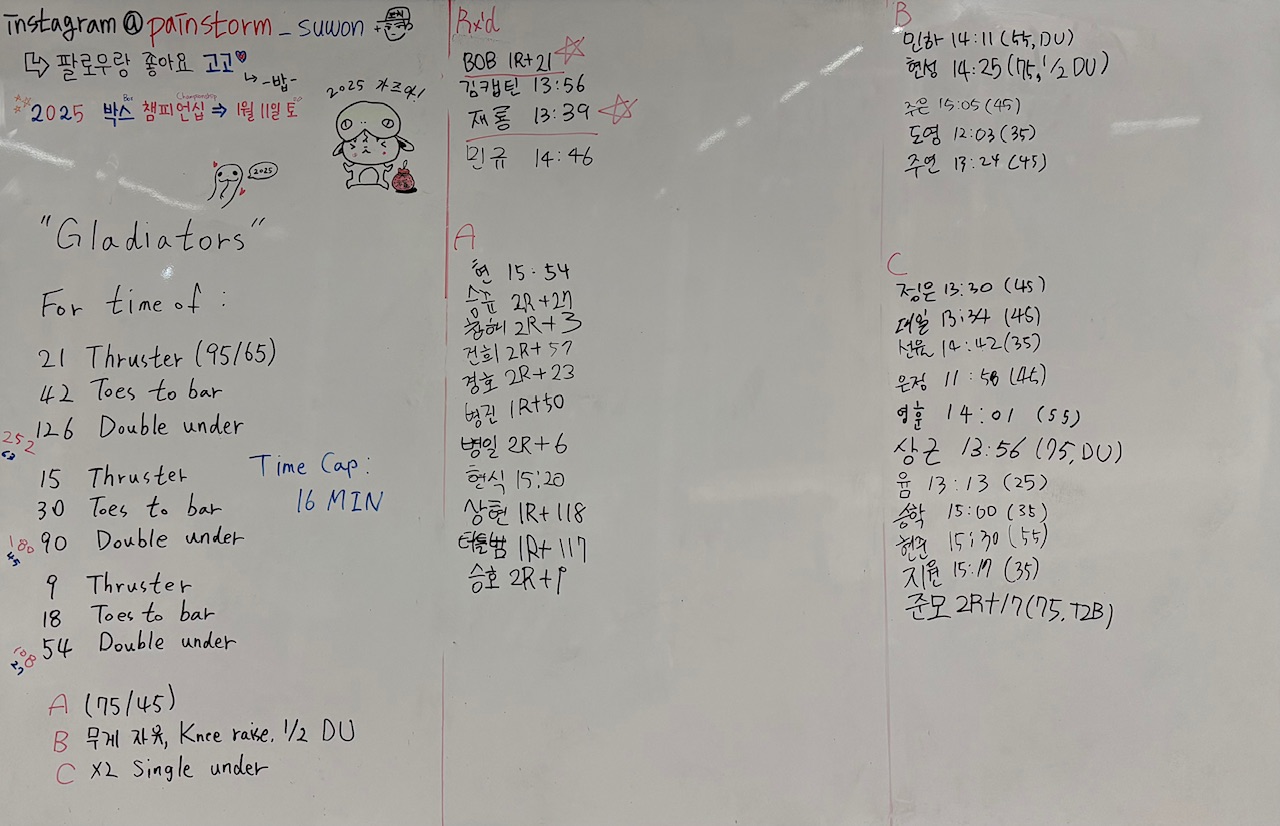 instagram@painstorm_suwon +
팔로우랑 좋아요 고고
-밥-
Box Championship
2025 박스 챔피언십 ⇒ 1월 11일 토
2025 가즈아!
2025
"Gladiators"
For time of :
21 Thruster (95/65)
42 Toes to bar
252
63
126 Double under
15 Thruster
30 Toes to bar
180
45
90 Double under
9 Thruster
18 Toes to bar
108
27
54 Double under
Time Cap:
16 MIN
A (75/45)
B 무게 자유, Knee raise. 1/2 DU
C X2 Single under
Rx'd
BOB 1R+21
김캡틴 13:56
재룡 13:39
민규 14:46
A
현 15:54
승규 2R+27
2R+3
건희 2R+57
경호 2R+23
병진 1R+50
병일 2R+6
현식 15:20
상현 1R+118
터틀밤 1R+117
승호 2R+9
B
민하 14:11 (55, DU)
현성 14:25 (75, 1/2 DU)
주은 15:05 (45)
도영 12:03 (35)
주연 13:24 (45)
C
정은 13:30 (45)
대일 13:34 (45)
선웅 14:42 (35)
은정 11:58 (45)
영훈 14:01 (55)
상근 13:56 (75, DU)
윰 13:13 (25)
승학 15:00 (35)
현준 15:30 (55)
지원 15:17 (35)
준모 2R+17 (75, T2B)